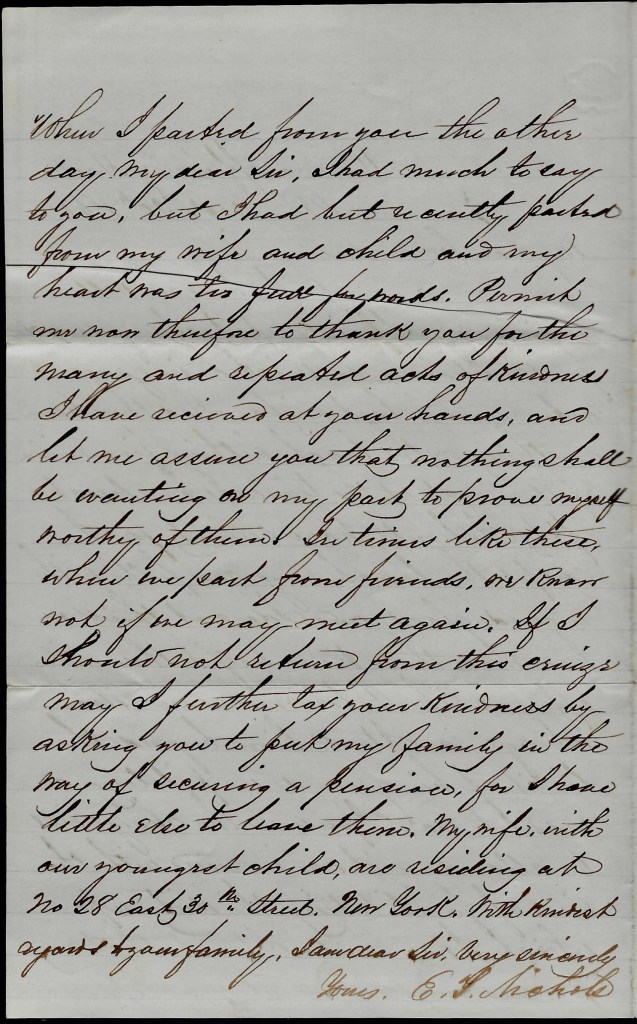 When I parted from you the other
day my dear Sir, I had much to say
to you, but I had but recently parted
from my wife and child and my
heart was too full for words. Permit
me now therefore to thank you for the
many and repeated acts of kindness
I have recieved at your hands, and
let me assure you that nothing shall
be wanting on my part to prove myself
worthy of them. In times like these,
when we part from friends, we know
not if we may meet again. If I
should not return from this cruize
may I further tax your kindness by
asking you to put my family in the
way of securing a pension, for I have
little else to leave them. My wife, with
our youngest child, are residing at
No 28 East 30th Street. New York. With kindest
regards to your family, I am dear Sir, Very sincerely
Yours. E. T. Nichols